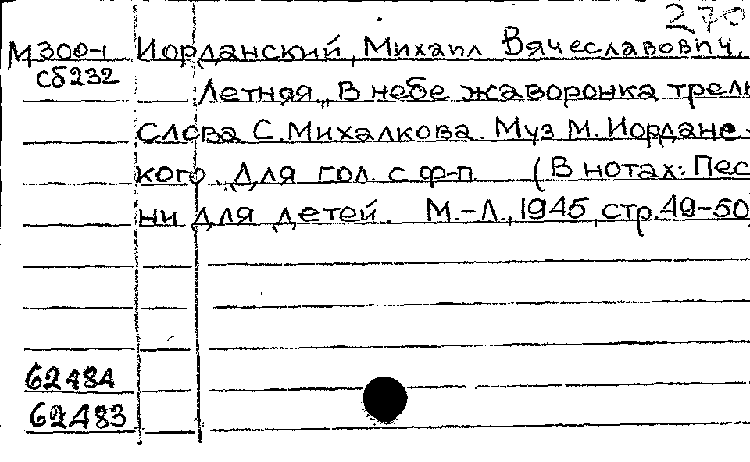 270
М300-1 Иорданский, Михаил Вячеславович.
сб232
Летняя. „В небе жаворонка трель
Слова С. Михалкова. Муз М. Иорданс-
кого. Для гол. с ф-п (В нотах: Пес
ни для детей. М.-Л., 1945, стр. 49-50
62484
62483